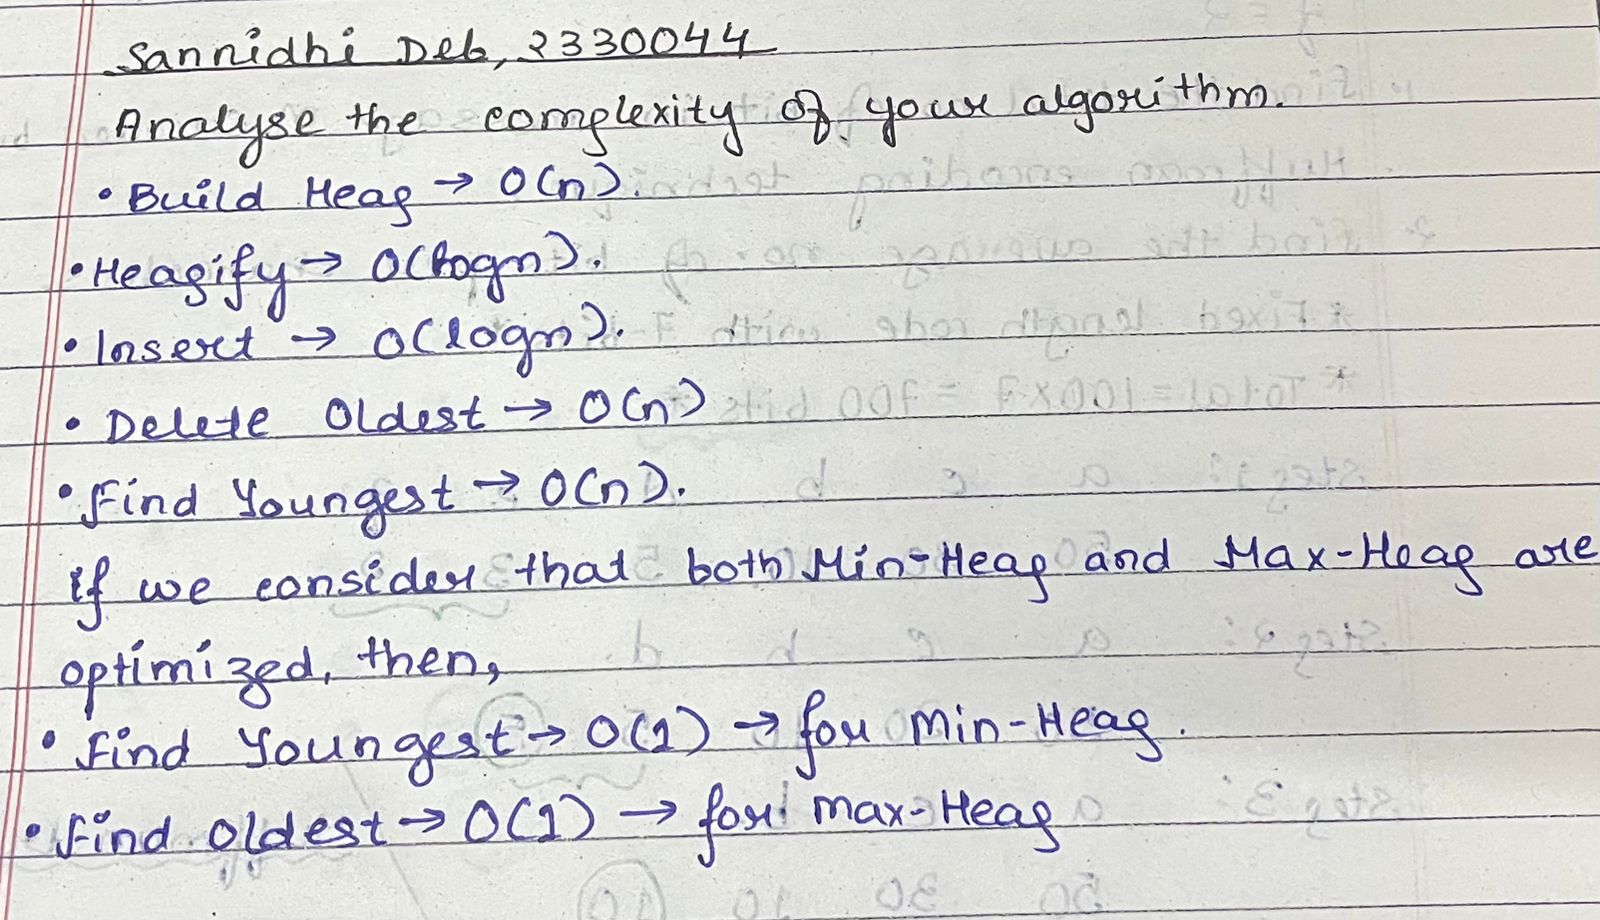 Sannidhi Deb, 2330044
Analyse the complexity of your algorithm.
• Build Heap → O(n).
• Heapify → O(logn).
• Insert → O(logn).
• Delete Oldest → O(n)
• Find Youngest → O(n).
if we consider that both Min-Heap and Max-Heap are
optimized, then,
• Find Youngest → O(1) → for Min-Heap.
• Find Oldest → O(1) → for max-Heap